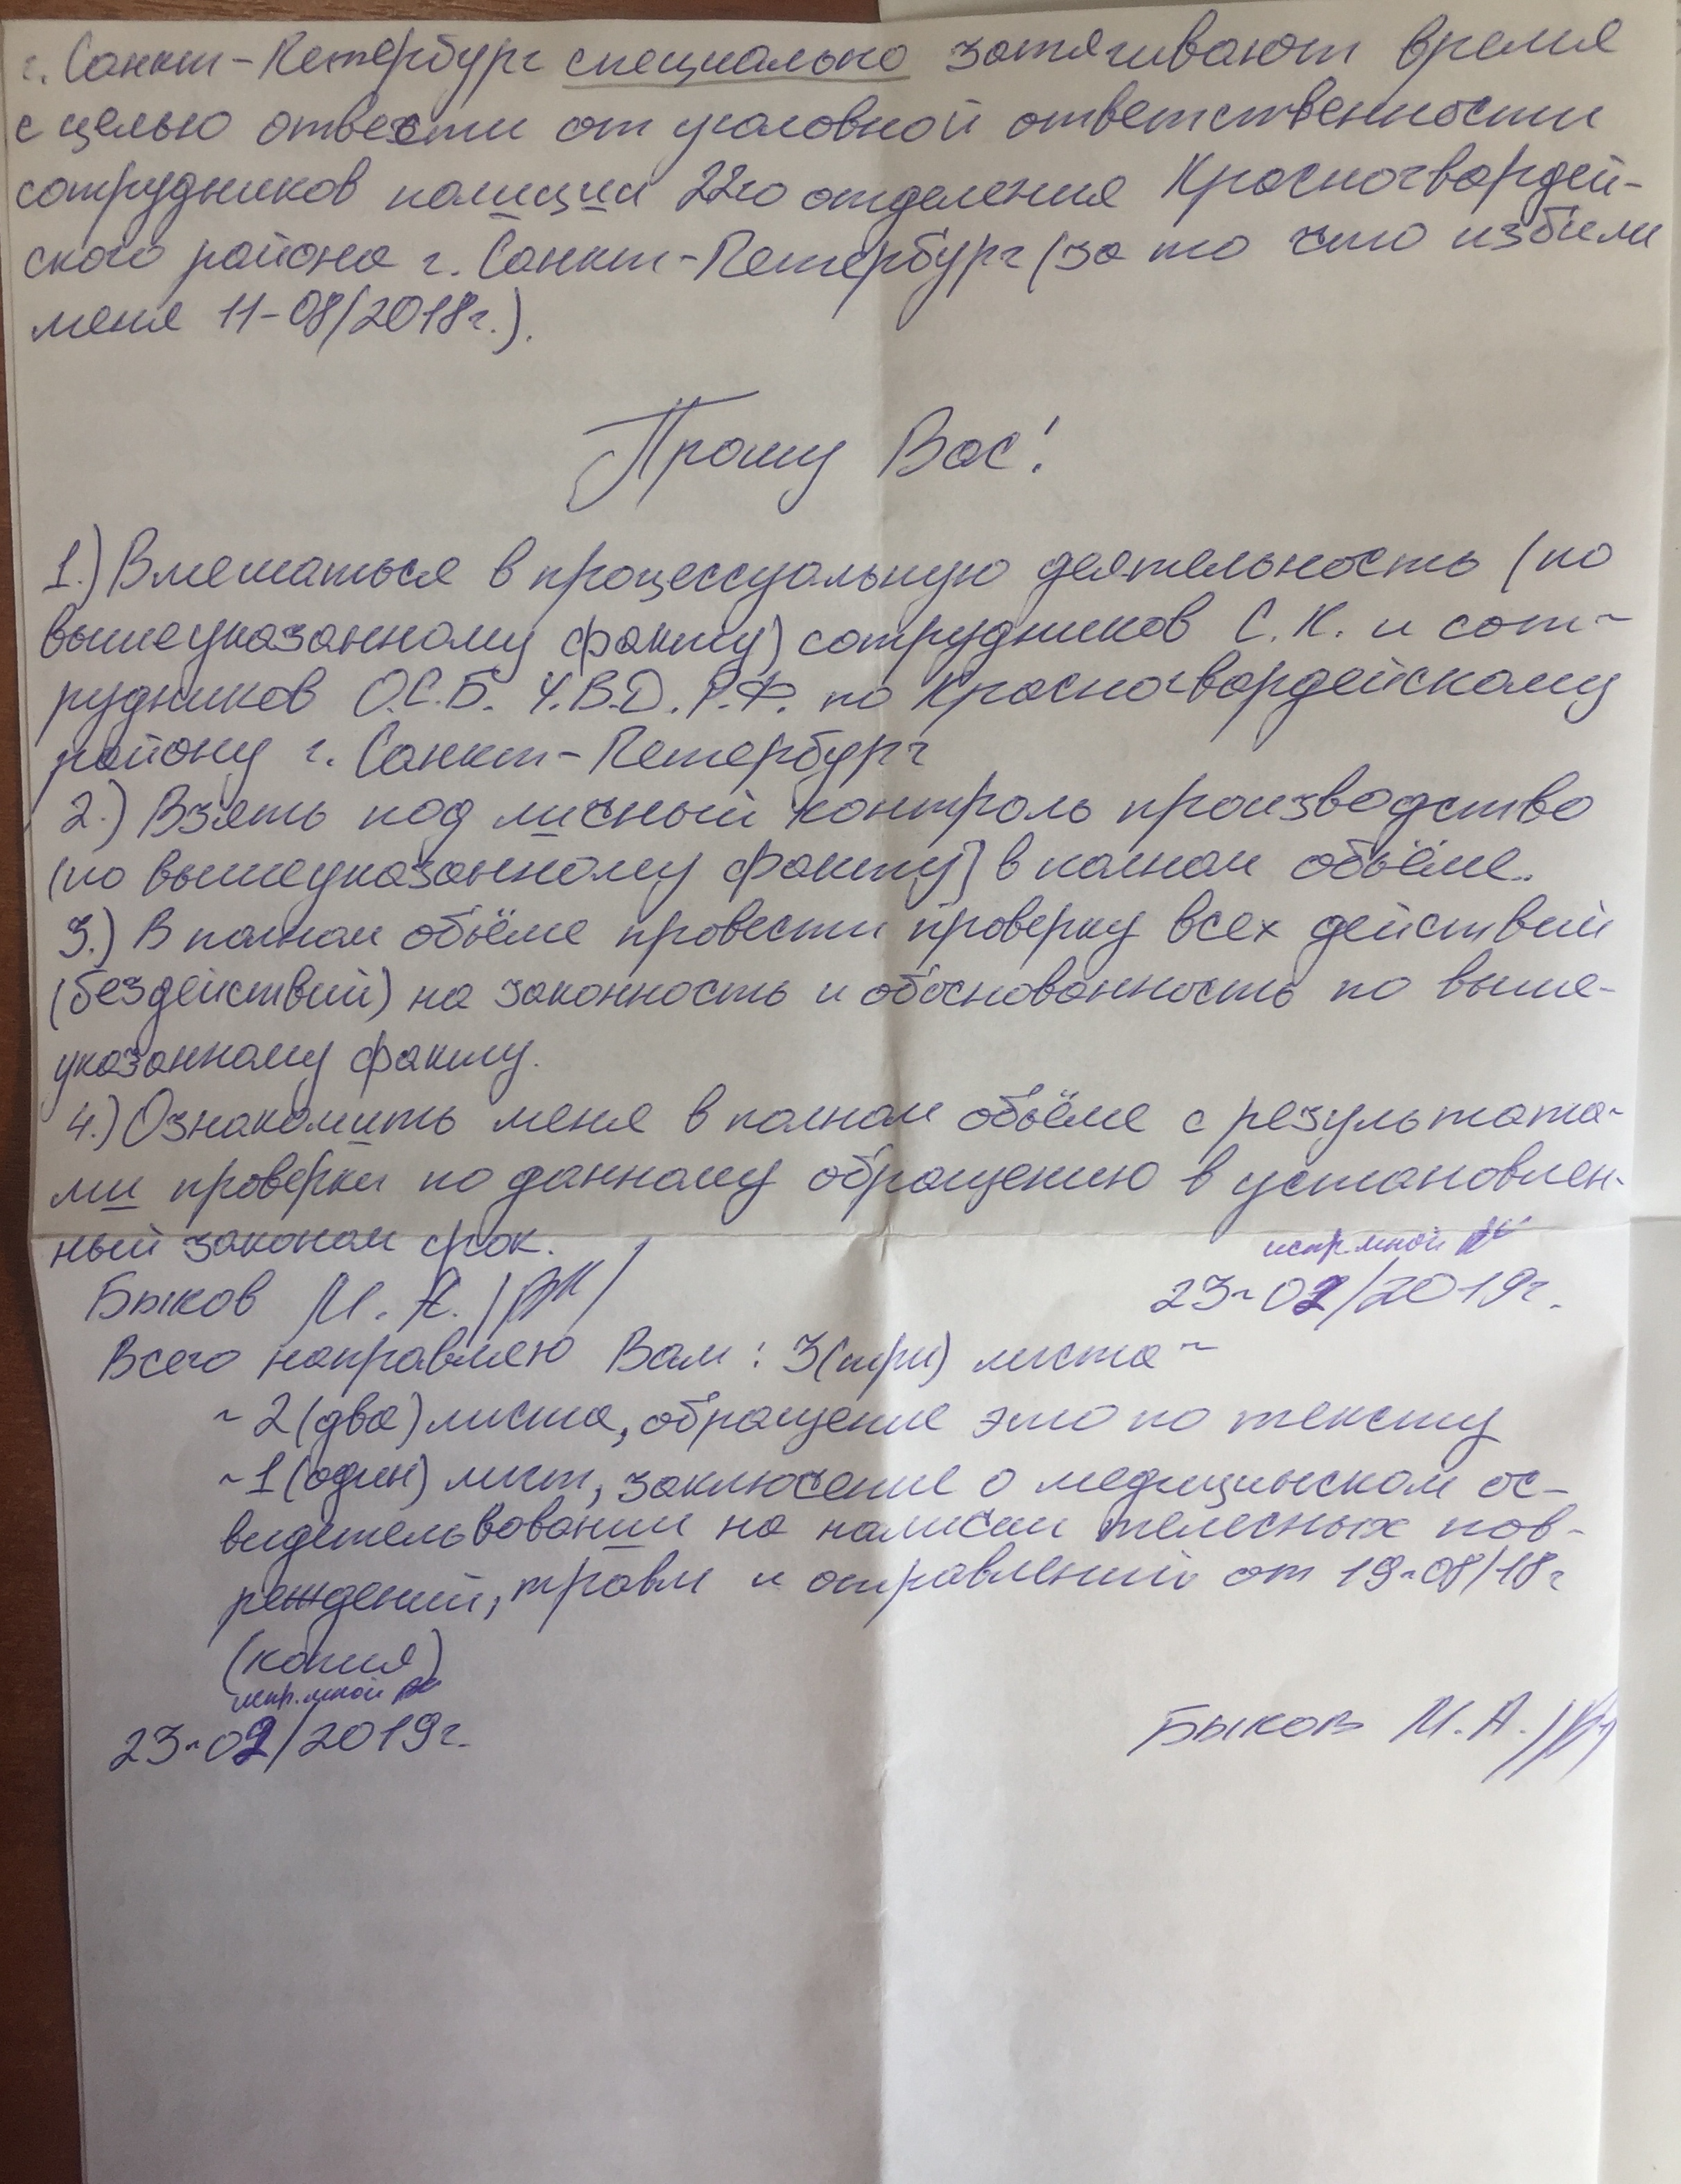 г. Санкт-Петербург специально затягивают время
с целью отвести от уголовной ответственности
сотрудников полиции 22го отделения Красногвардей-
ского района г. Санкт-Петербург (за то что избили
меня 11-08/2018г.).
Прошу Вас!
1.) Вмешаться в процессуальную деятельность (по
вышеуказанному факту) сотрудников С.К. и сот-
рудников О.С.Б. У.В.Д. Р.Ф. по Красногвардейскому
району г. Санкт-Петербург
2.) Взять под личный контроль производство
(по вышеуказанному факту) в полном объёме.
3.) В полном объёме провести проверку всех действий
(бездействий) на законность и обоснованность по выше-
указанному факту.
4.) Ознакомить меня в полном объёме с результата-
ми проверки по данному обращению в установлен-
ный законом срок.
испр. мной
Быков М.А. 23-02/2019г.
Всего направляю Вам: 3(три) листа-
- 2(два) листа, обращение это по тексту
- 1(один) лист, заключение о медицинском ос-
видетельствовании на наличии телесных пов-
реждений, травм и отравлений от 19-08/18г
(копия)
испр. мной
23-02/2019г. Быков М.А.